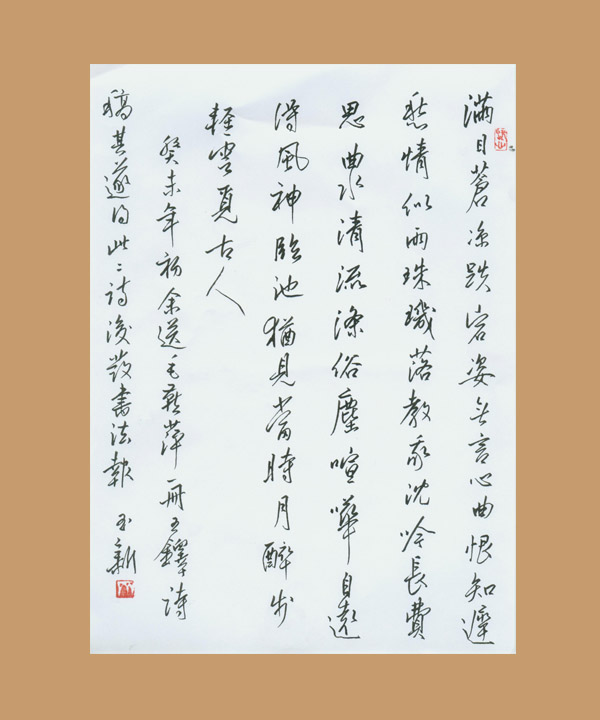 滿目蒼凉跌宕姿无言心曲恨知遲
愁情似雨珠璣落教我沈吟長費
思曲水清流滌俗塵喧嘩自遠
得風神臨池猶見當時月醉步
輕雲覓古人
癸未年初余送毛燕萍一册王鐸詩
稿其遂得此二詩後發書法報 玉新